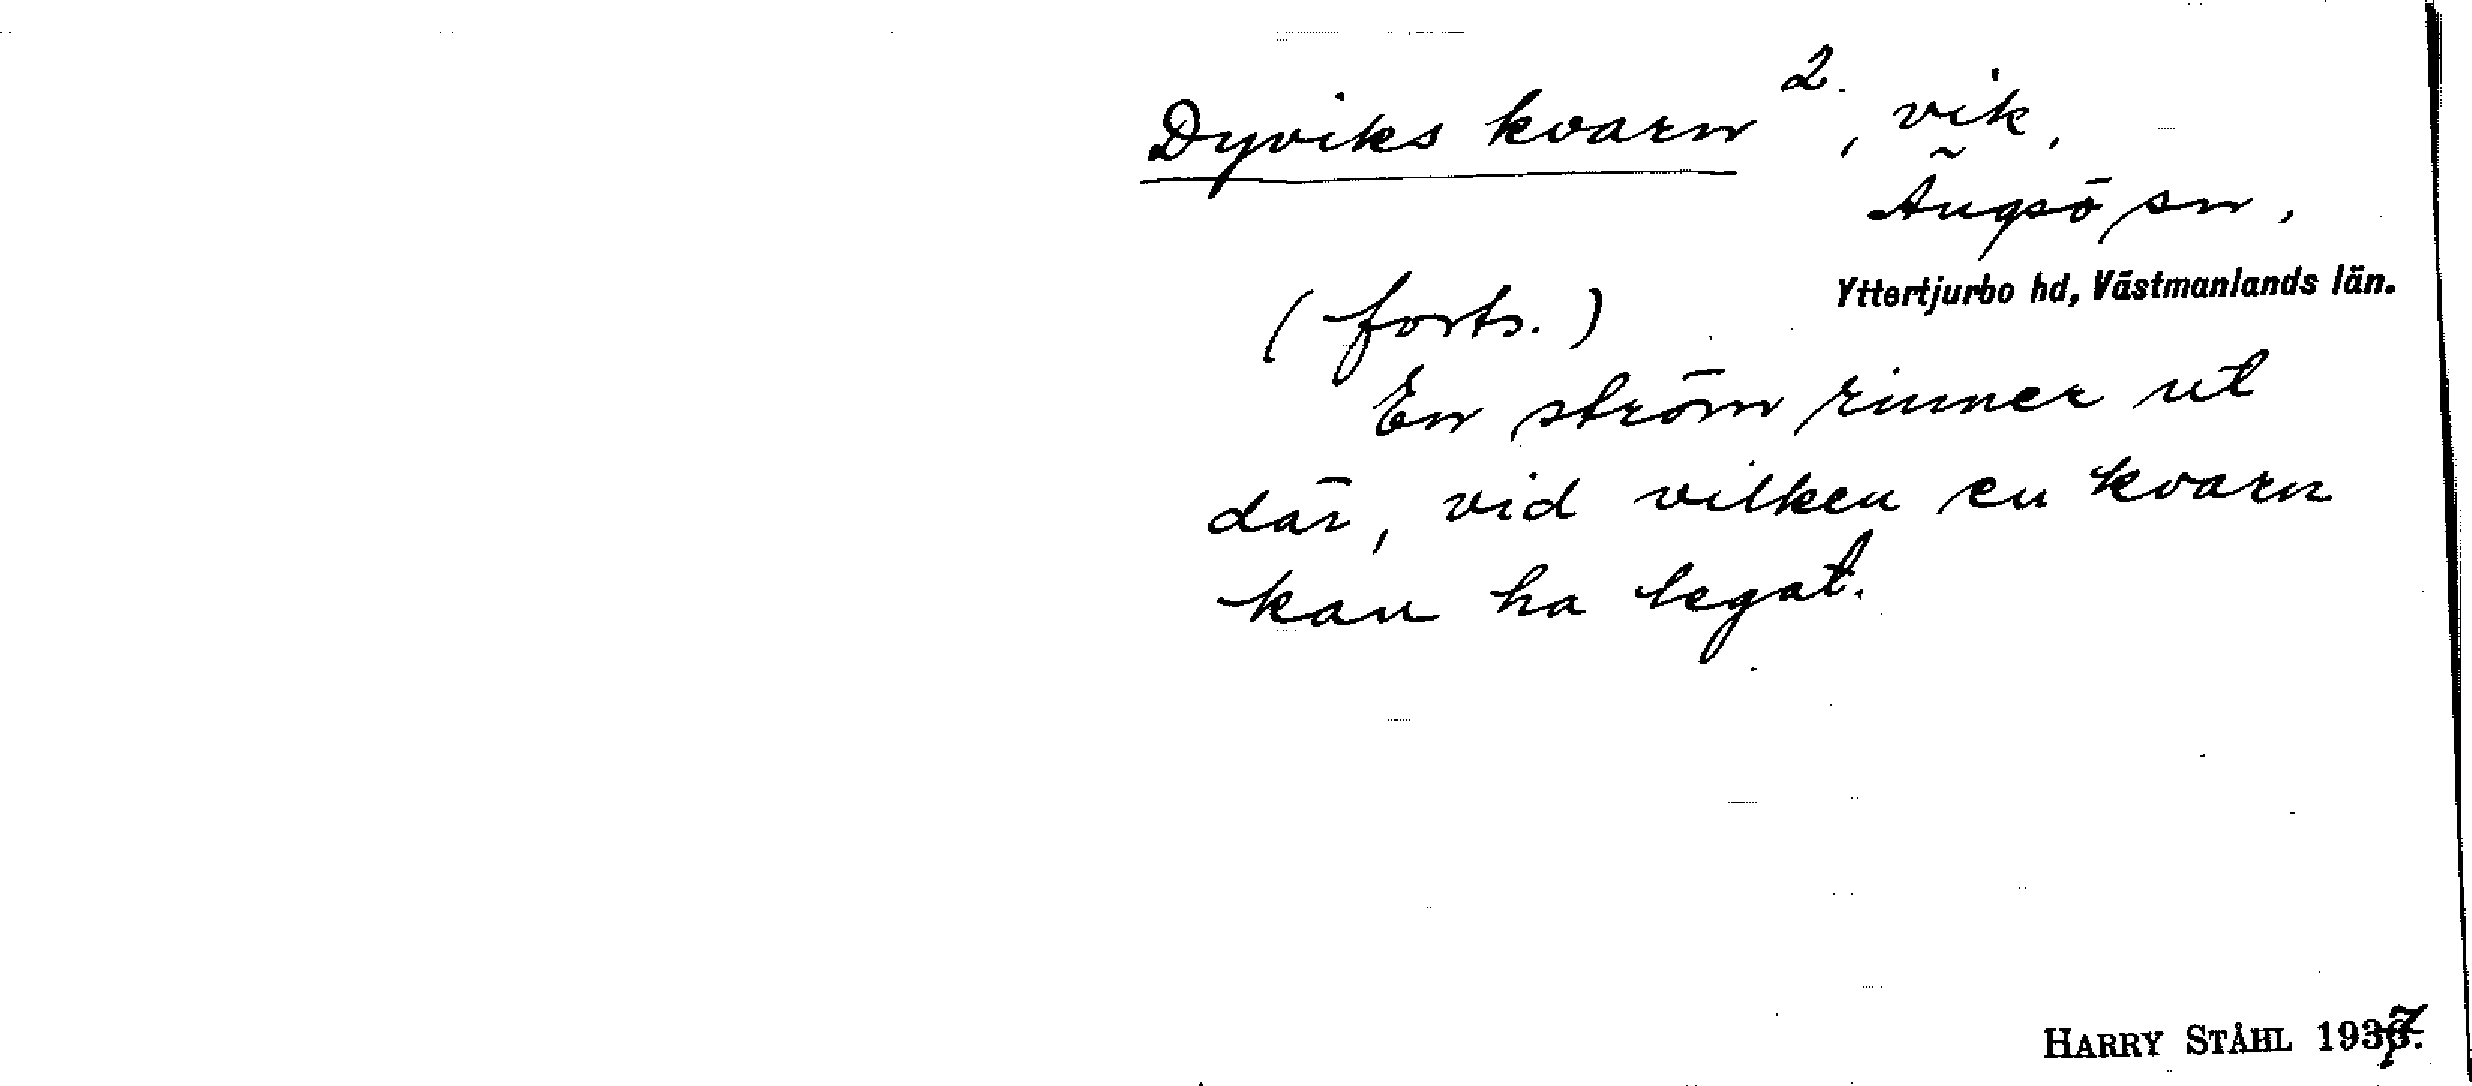 Dyviks kvarn 2., vik,
Ängsö sn,
Yttertjurbo hd, Västmanlands län.
(forts.)
En ström rinner ut
där, vid vilken en kvarn
kan ha legat.
HARRY STÅHL 1937.